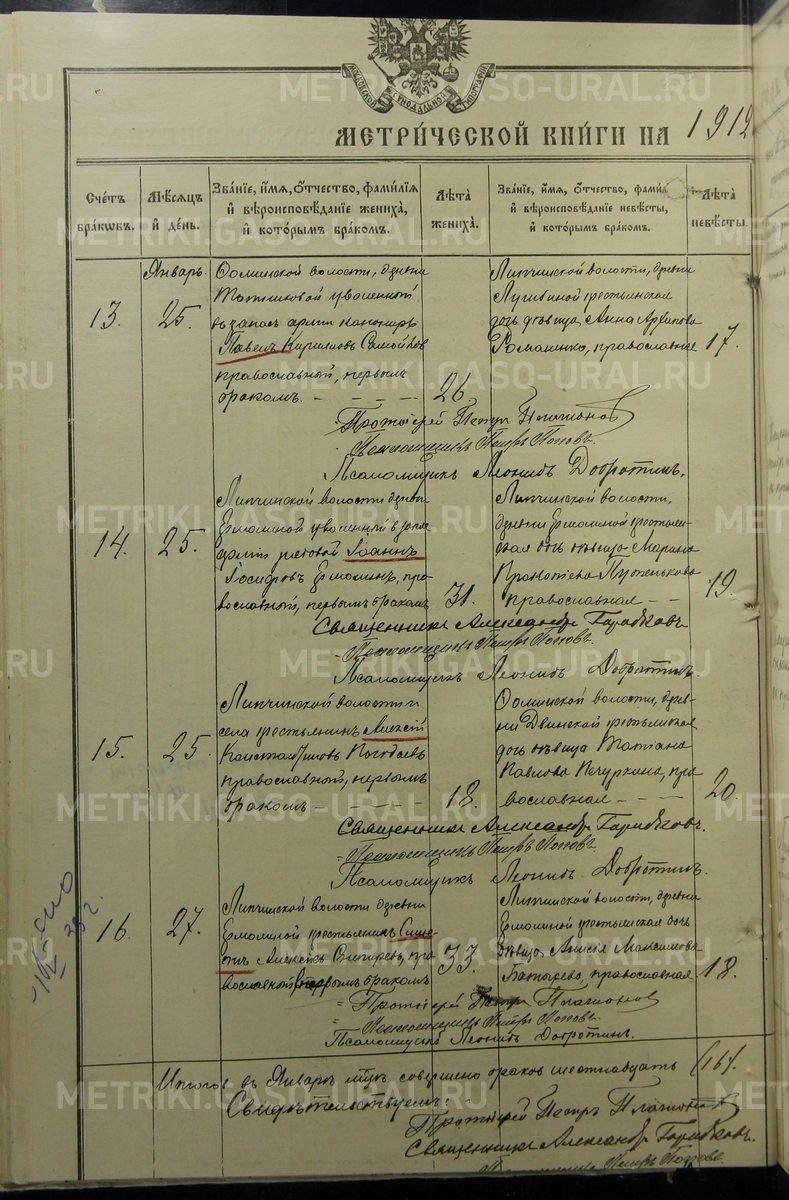 МОСКОВСКОЙ СѴНОДАЛЬНОЙ ТИПОГРАФІИ
МЕТРИ́ЧЕСКОЙ КНИ́ГИ НА 1912
Сче́тъ бра́кѡвъ.
Мѣ́сѧцъ и҆ де́нь.
Зва́нїе, и҆́мѧ, ѻ҆́тчество, фами́лїѧ
и҆ вѣроисповѣ́данїе жениха̀,
и҆ кото́рымъ бра́комъ.
Лѣ́та жениха̀.
Зва́нїе, и҆́мѧ, ѻ҆́тчество, фами́лїѧ
и҆ вѣроисповѣ́данїе невѣ́сты,
и҆ кото́рымъ бра́комъ.
Лѣта̀ невѣ́сты.
Январь
13.
25.
волости, дрвни
уволенный
въ запасъ арміи канониръ
Павелъ Кириловъ Самойловъ
православный, первымъ
бракомъ. - - - -
26
Липчинской волости, дрвни
крестьянская
дочь дѣвица Анна Архипова
Романенко, православная
17.
Протоіерей Петръ Платоновъ
Петръ Поповъ.
Псаломщикъ Леонидъ Добротинъ.
14.
25.
Липчинской волости дрвни
Ермолиной уволенный въ запас
арміи рядовой Іоаннъ
Іосифовъ Ермолинъ, пра-
вославный, первымъ бракомъ
31.
Липчинской волости,
дрвни Ермолиной крестьян-
ская дочь дѣвица Марина
православная - -
19.
Священникъ Александръ
Петръ Поповъ.
Псаломщикъ Леонидъ Добротинъ.
15.
25.
Липчинской волости и
села крестьянинъ Алексій
Константиновъ Погодаевъ
православный, первымъ
бракомъ - - - -
18.
волости, древ-
ни Двинской крестьянская
дочь дѣвица Татіана
Павлова Печуркина, пра-
вославная - - -
20.
Священникъ Александръ
Петръ Поповъ.
Псаломщикъ Леонидъ Добротинъ.
16.
27.
Липчинской волости дрвни
Ермолиной крестьянинъ Симе-
онъ Алексѣевъ пра-
вославный, бракомъ
33.
Липчинской волости, дрвни
Ермолиной крестьянская дочь
дѣвица Анисія Максимова
православная
18.
Протоіерей Петръ Платоновъ
Петръ Поповъ.
Псаломщикъ Леонидъ Добротинъ.
Итого въ Январѣ м-цѣ совершено браковъ шестнадцать (16).
Свидѣтельствуемъ:
Протоіерей Петръ Платоновъ
Священникъ Александръ
Петръ Поповъ
METRIKI.GASO-URAL.RU